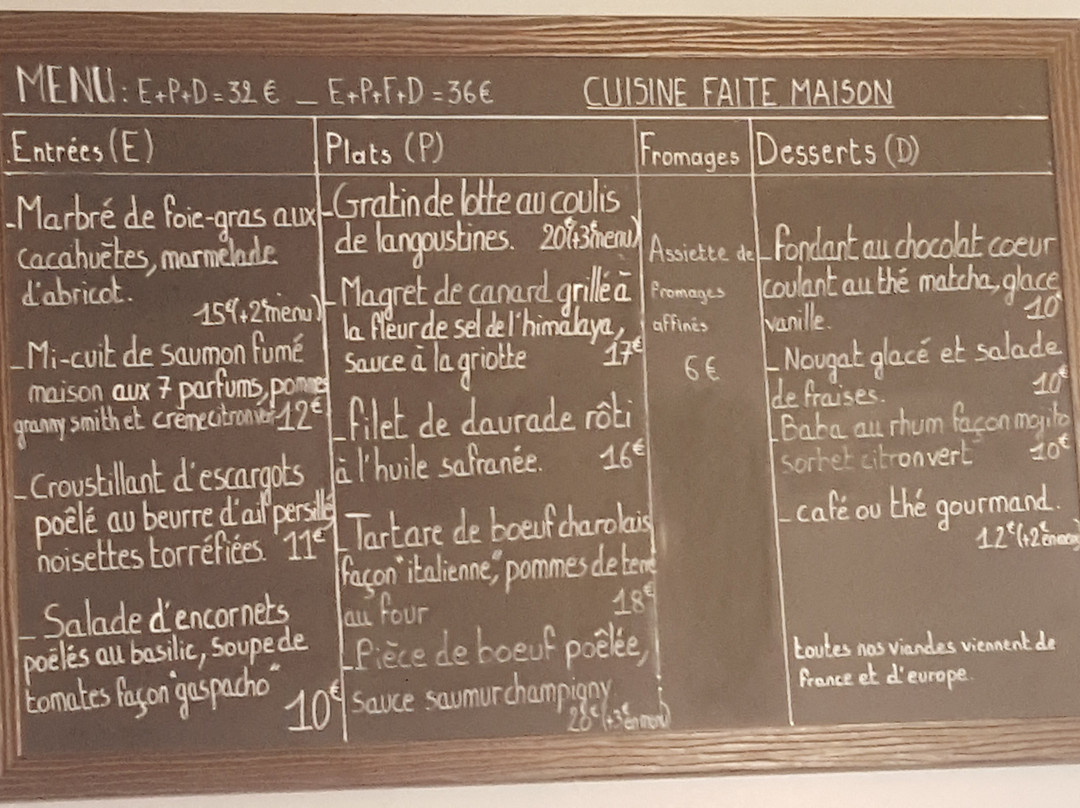 MENU: E+P+D = 32 € _ E+P+F+D = 36€
CUISINE FAITE MAISON
Entrées (E)
_Marbré de foie-gras aux
cacahuètes, marmelade
d'abricot.
15€(+2€menu)
_Mi-cuit de saumon fumé
maison aux 7 parfums, pommes
granny smith et crème citron vert 12€
_Croustillant d'escargots
poêlé au beurre d'ail persillé
noisettes torréfiées. 11€
_ Salade d'encornets
poëlés au basilic, soupe de
tomates façon "gaspacho"
10€
Plats (P)
_Gratin de lotte au coulis
de langoustines. 20€(+3€menu)
_Magret de canard grillé à
la fleur de sel de l'himalaya,
sauce à la griotte 17€
_filet de daurade rôti
à l'huile safranée. 16€
_Tartare de boeuf charolais
façon "italienne", pommes de terre
au four 18€
_Pièce de boeuf poêlée,
sauce saumur champigny
20€(+3€ en menu)
Fromages
Assiette de
fromages
affinés
6€
Desserts (D)
_fondant au chocolat coeur
coulant au thé matcha, glace
vanille. 10
_Nougat glacé et salade
de fraises. 10€
_Baba au rhum façon mojito
sorbet citron vert 10€
_café ou thé gourmand.
12€(+2€ en menu)
toutes nos viandes viennent de
france et d'europe.